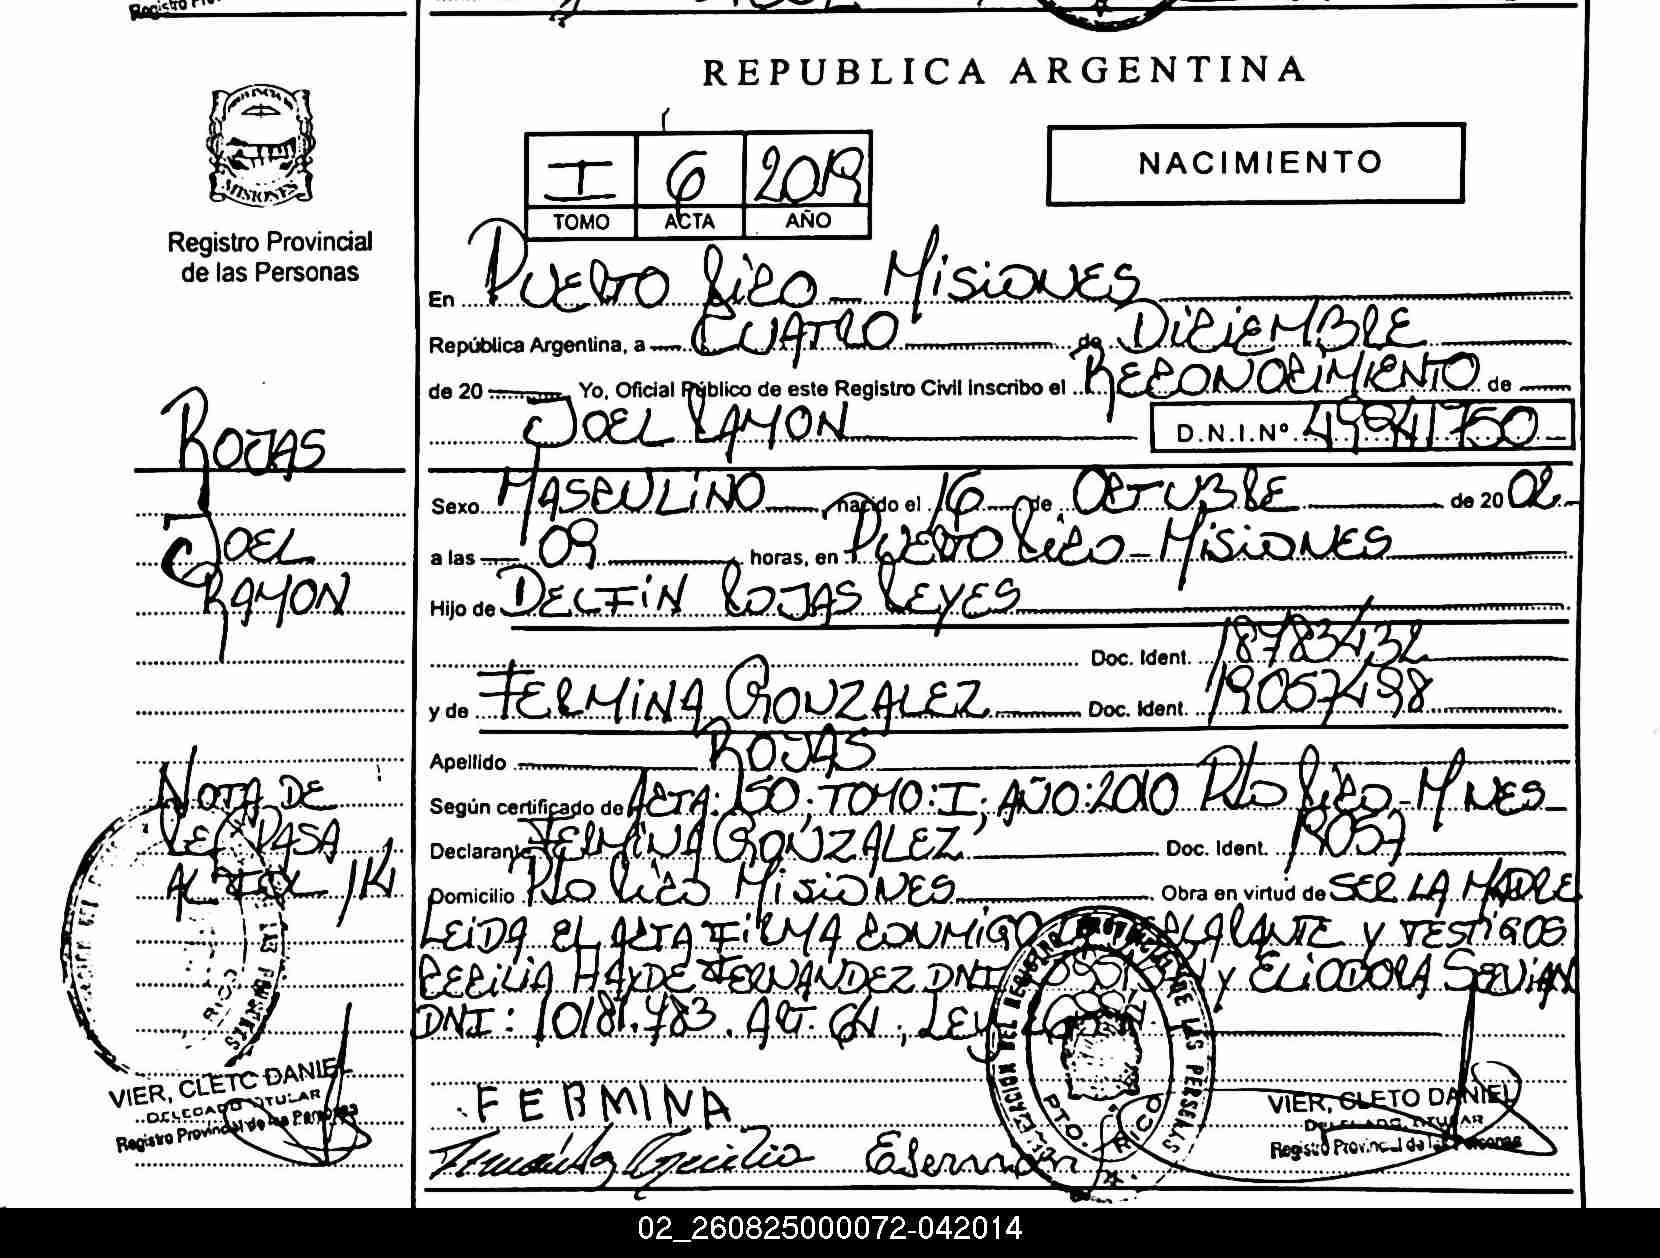 REPUBLICA ARGENTINA
MISIONES
Registro Provincial
de las Personas
I 6 2019
TOMO ACTA AÑO
NACIMIENTO
En PUERTO RICO - MISIONES
República Argentina, a CUATRO de DICIEMBRE
de 20 Yo, Oficial Público de este Registro Civil Inscribo el RECONOCIMIENTO de
JOEL RAMON D.N.I.Nº 49941750
ROJAS
JOEL
RAMON
Sexo MASCULINO nacido el 16 de OCTUBRE de 20 02
a las 09 horas, en PUERTO RICO - MISIONES
Hijo de DELFIN ROJAS REYES
Doc. Ident. 18783432
y de FERMINA GONZALEZ Doc. Ident. 19057498
Apellido ROJAS
Según certificado de ACTA: 150; TOMO: I; AÑO: 2010 Pto RICO - MNES
Declarante FERMINA GONZALEZ Doc. Ident. 19057
Domicilio Pto RICO MISIONES Obra en virtud de SER LA MADRE
LEIDA EL ACTA FIRMA CONMIGO Y TESTIGOS
CECILIA HAYDE FERNANDEZ DNI Y ELIODORA SERVIAN
DNI: 10181.783. ART. 64, LEY
NOTA DE
REF PASA
AL FOL 114
VIER, CLETO DANIEL
DELEGADO TITULAR
Registro Provincial de las Personas
FERMINA
Fernández Cecilia EServian
PTO. RICO
VIER, CLETO DANIEL
DELEGADO TITULAR
Registro Provincial de las Personas
02_260825000072-042014